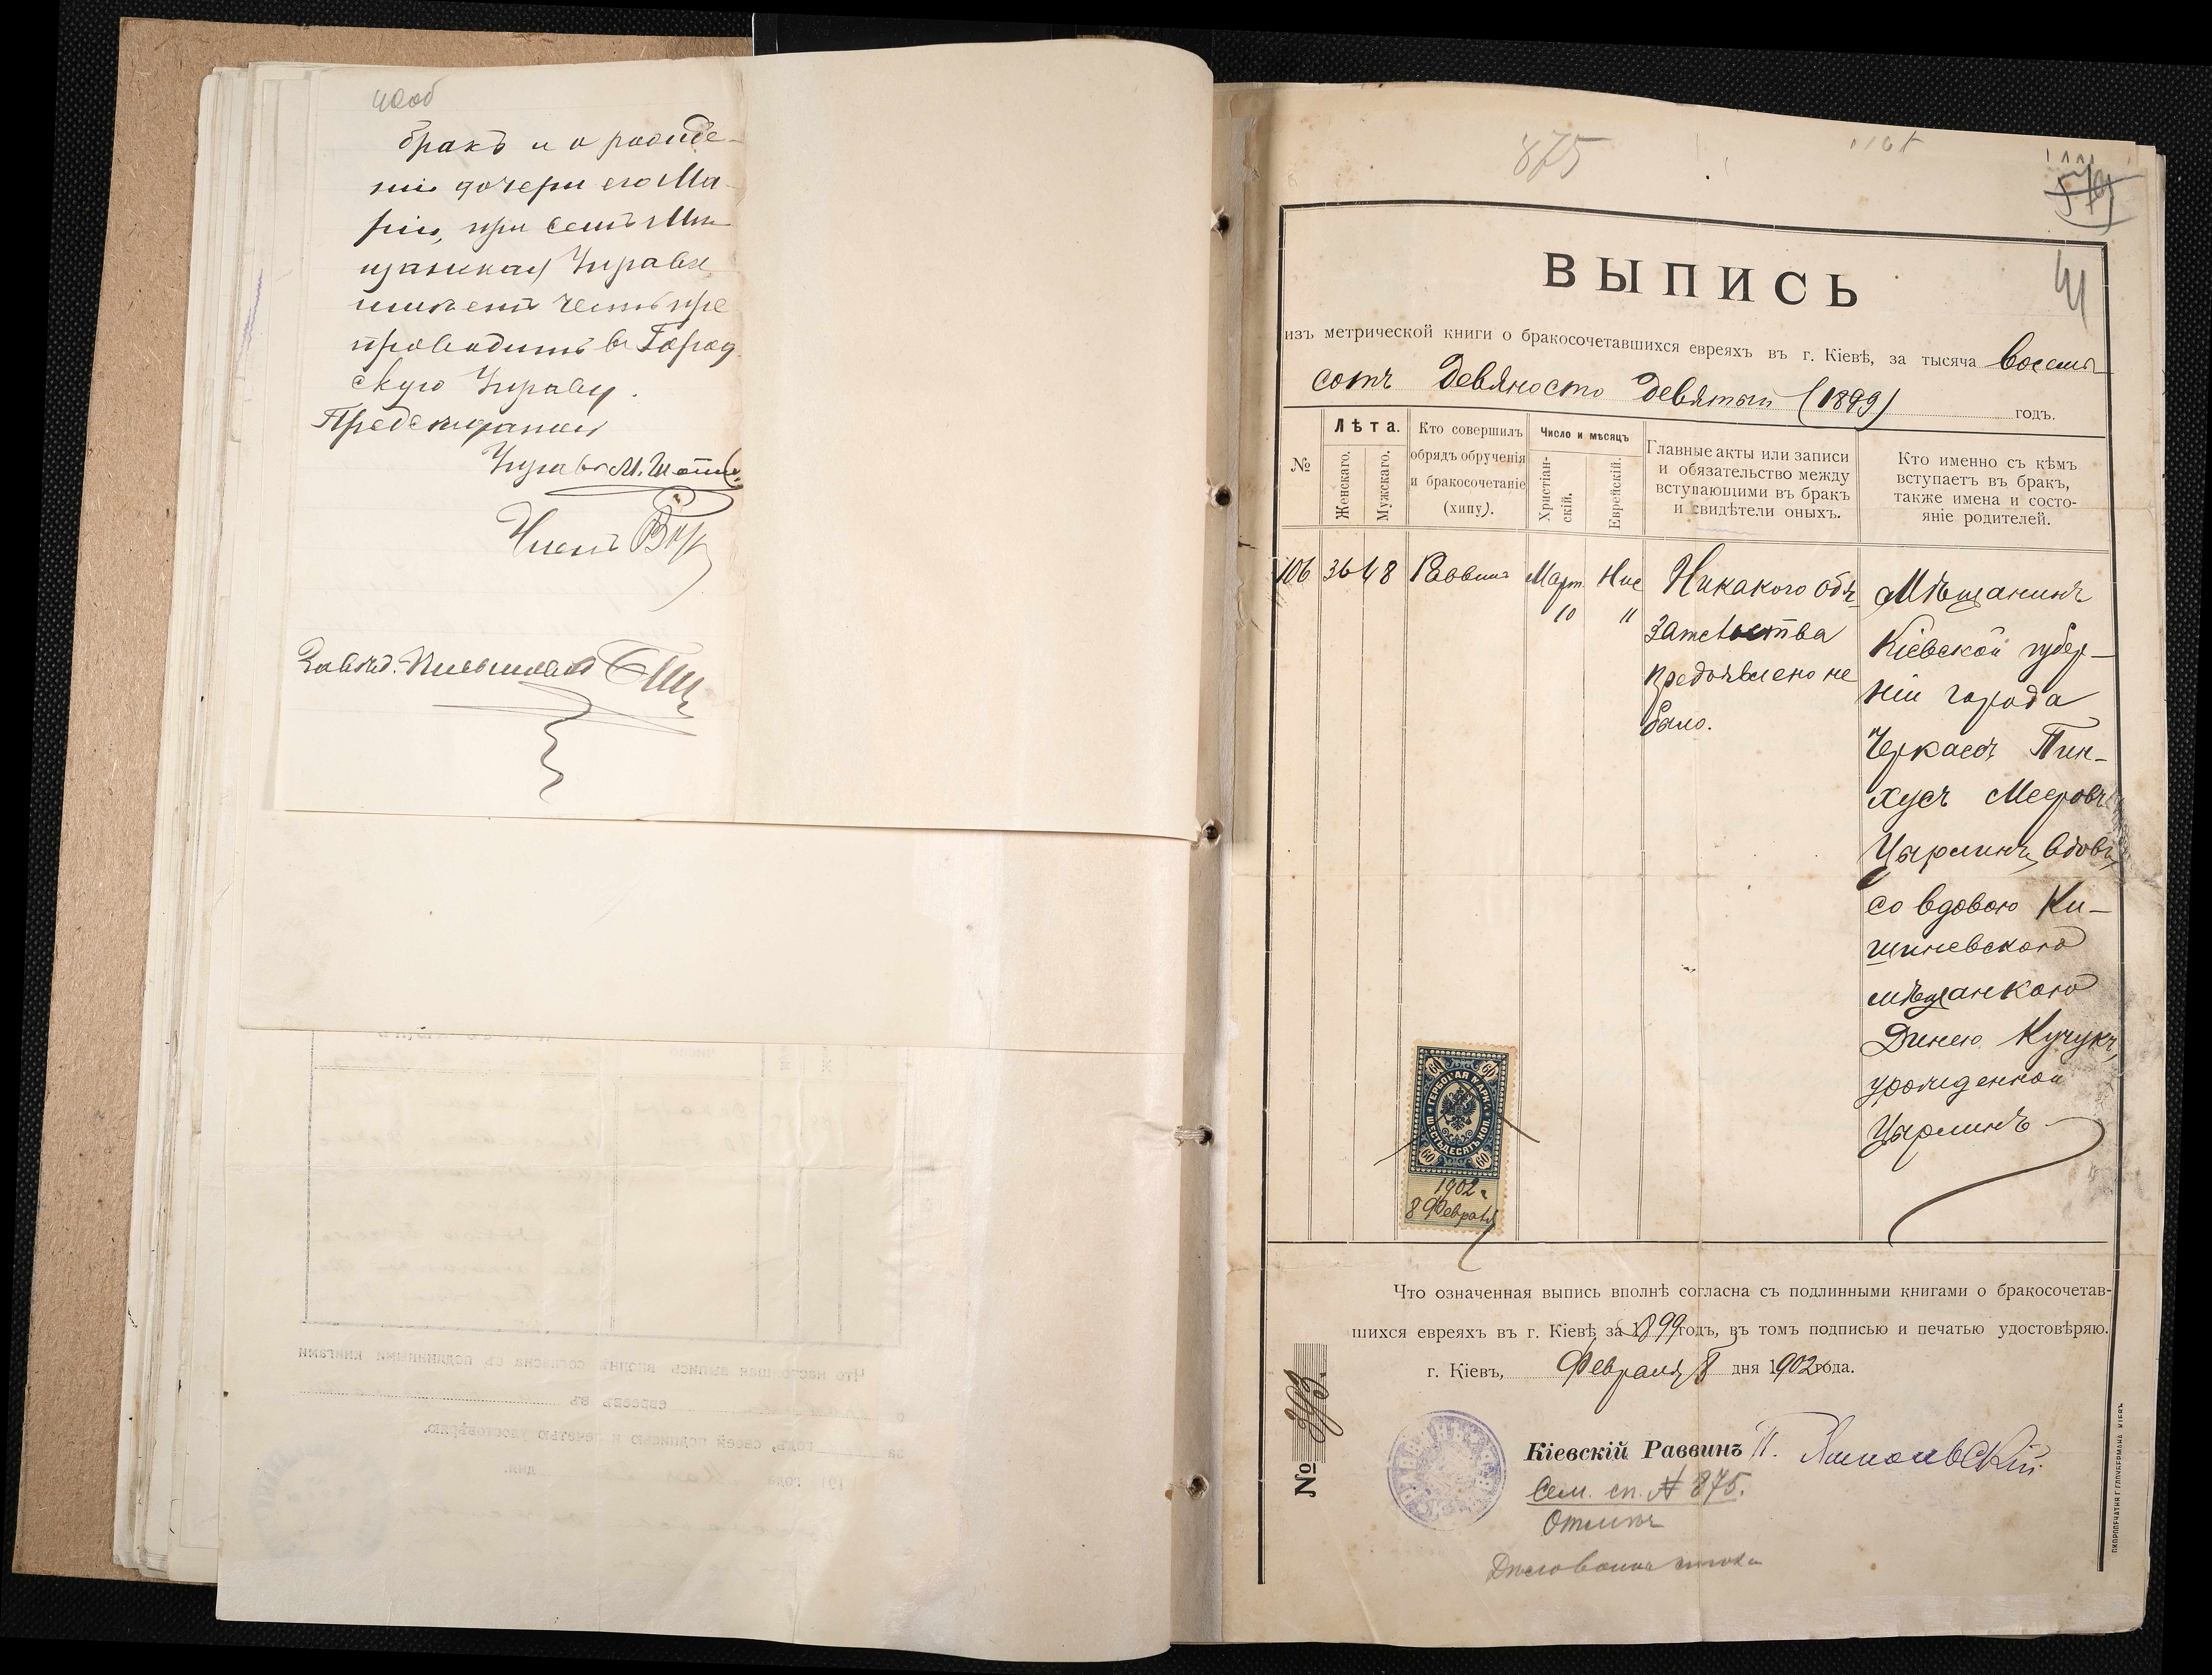 40об
бракъ и о рожде-
нiи дочери его Ма-
рiи, при семъ Мѣ
щанская Управа
имѣетъ честь пре
проводить въ Город
скую Управу.
Предсѣдатель
Управы М.
Членъ
Завѣд.
875
41
ВЫПИСЬ
изъ метрической книги о бракосочетавшихся евреяхъ въ г. Кіевѣ, за тысяча восемь
сотъ девяносто девятый (1899) годъ.
№
Лѣта.
Женскаго.
Мужскаго.
Кто совершилъ
обрядъ обрученія
и бракосочетаніе
(хипу).
Число и мѣсяцъ
Христіан-
скій.
Еврейскій.
Главные акты или записи
и обязательство между
вступающими въ бракъ
и свидѣтели оныхъ.
Кто именно съ кѣмъ
вступаетъ въ бракъ,
также имена и состо-
яніе родителей.
106
36
48
Раввинъ
Март.
10
Нис
11
Никакого обя
зательства
предъявлено не
было.
Мѣщанинъ
Кіевской губер-
ніи города
Черкасъ Пин-
хусъ Мееровъ
Цырлинъ, вдовъ,
со вдовою Ки-
шиневскою
мѣщанкою
Динею Кучукъ,
урожденной
Цырлинъ
60 60
ГЕРБОВАЯ МАРКА
ШЕСТЬДЕСЯТЪ КОП.
60 60
1902 г
8 Февраля
Что означенная выпись вполнѣ согласна съ подлинными книгами о бракосочетав-
шихся евреяхъ въ г. Кіевѣ за 1899 годъ, въ томъ подписью и печатью удостовѣряю.
г. Кіевъ, Февраля 8 дня 1902 года.
№ 393.
Кіевскій Раввинъ
Сем. сп. № 875.
Что настоящая выпись вполнѣ согласна съ подлинными книгами
евреевъ въ
за годъ, своей подписью и печатью удостовѣряю.
191 года дня.